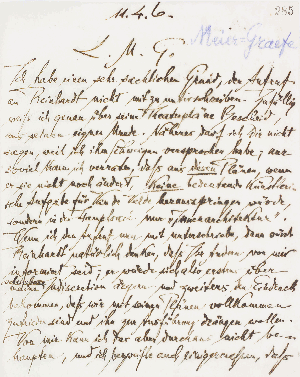 11.4.6.
285
L. M. G.
Meier-Graefe
Ich habe einen sehr sachlichen Grund, den Aufruf
an Reinhardt nicht mit zu unterschreiben. Zufällig
weiß ich genau über seine Theaterpläne Bescheid
aus seinem eignen Munde. Näheres darf ich Dir nicht
sagen, weil ich ihm Schweigen versprochen habe; nur
soviel kann ich verraten, daß aus diesen Plänen, wenn
er sie nicht noch ändert, keine bedeutende künstleri-
sche Aufgabe für Van de Velde herausspringen würde,
sondern in der Hauptsache nur "Innenarchitektur".
Wenn ich den Aufruf nun mit unterschriebe, dann würde
Reinhardt natürlich denken, daß Ihr andern von mir
informiert seid; er würde sich also erstens über
Indiscretion ärgern und zweitens den Eindruck
bekommen, daß wir mit seinen Plänen vollkommen
zufrieden sind und ihn zur Ausführung drängen wollen.
Von mir kann ich das aber durchaus nicht be-
haupten, und ich daß